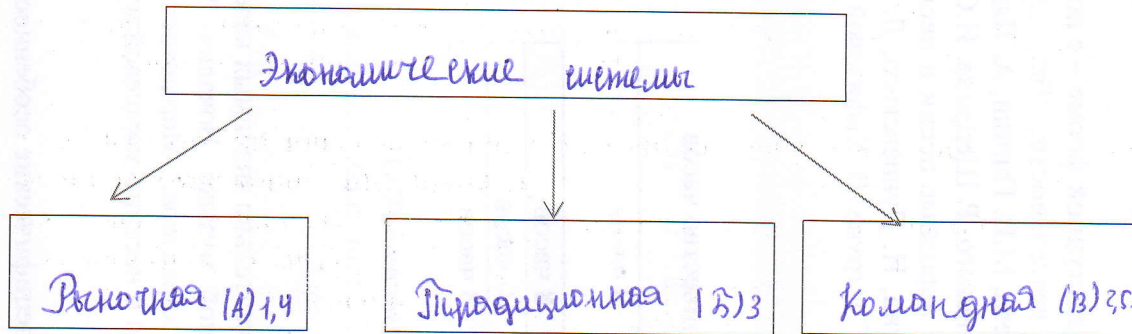 Экономические системы
Рыночная (А) 1,4
Традиционная (Б) 3
Командная (В) 2,5